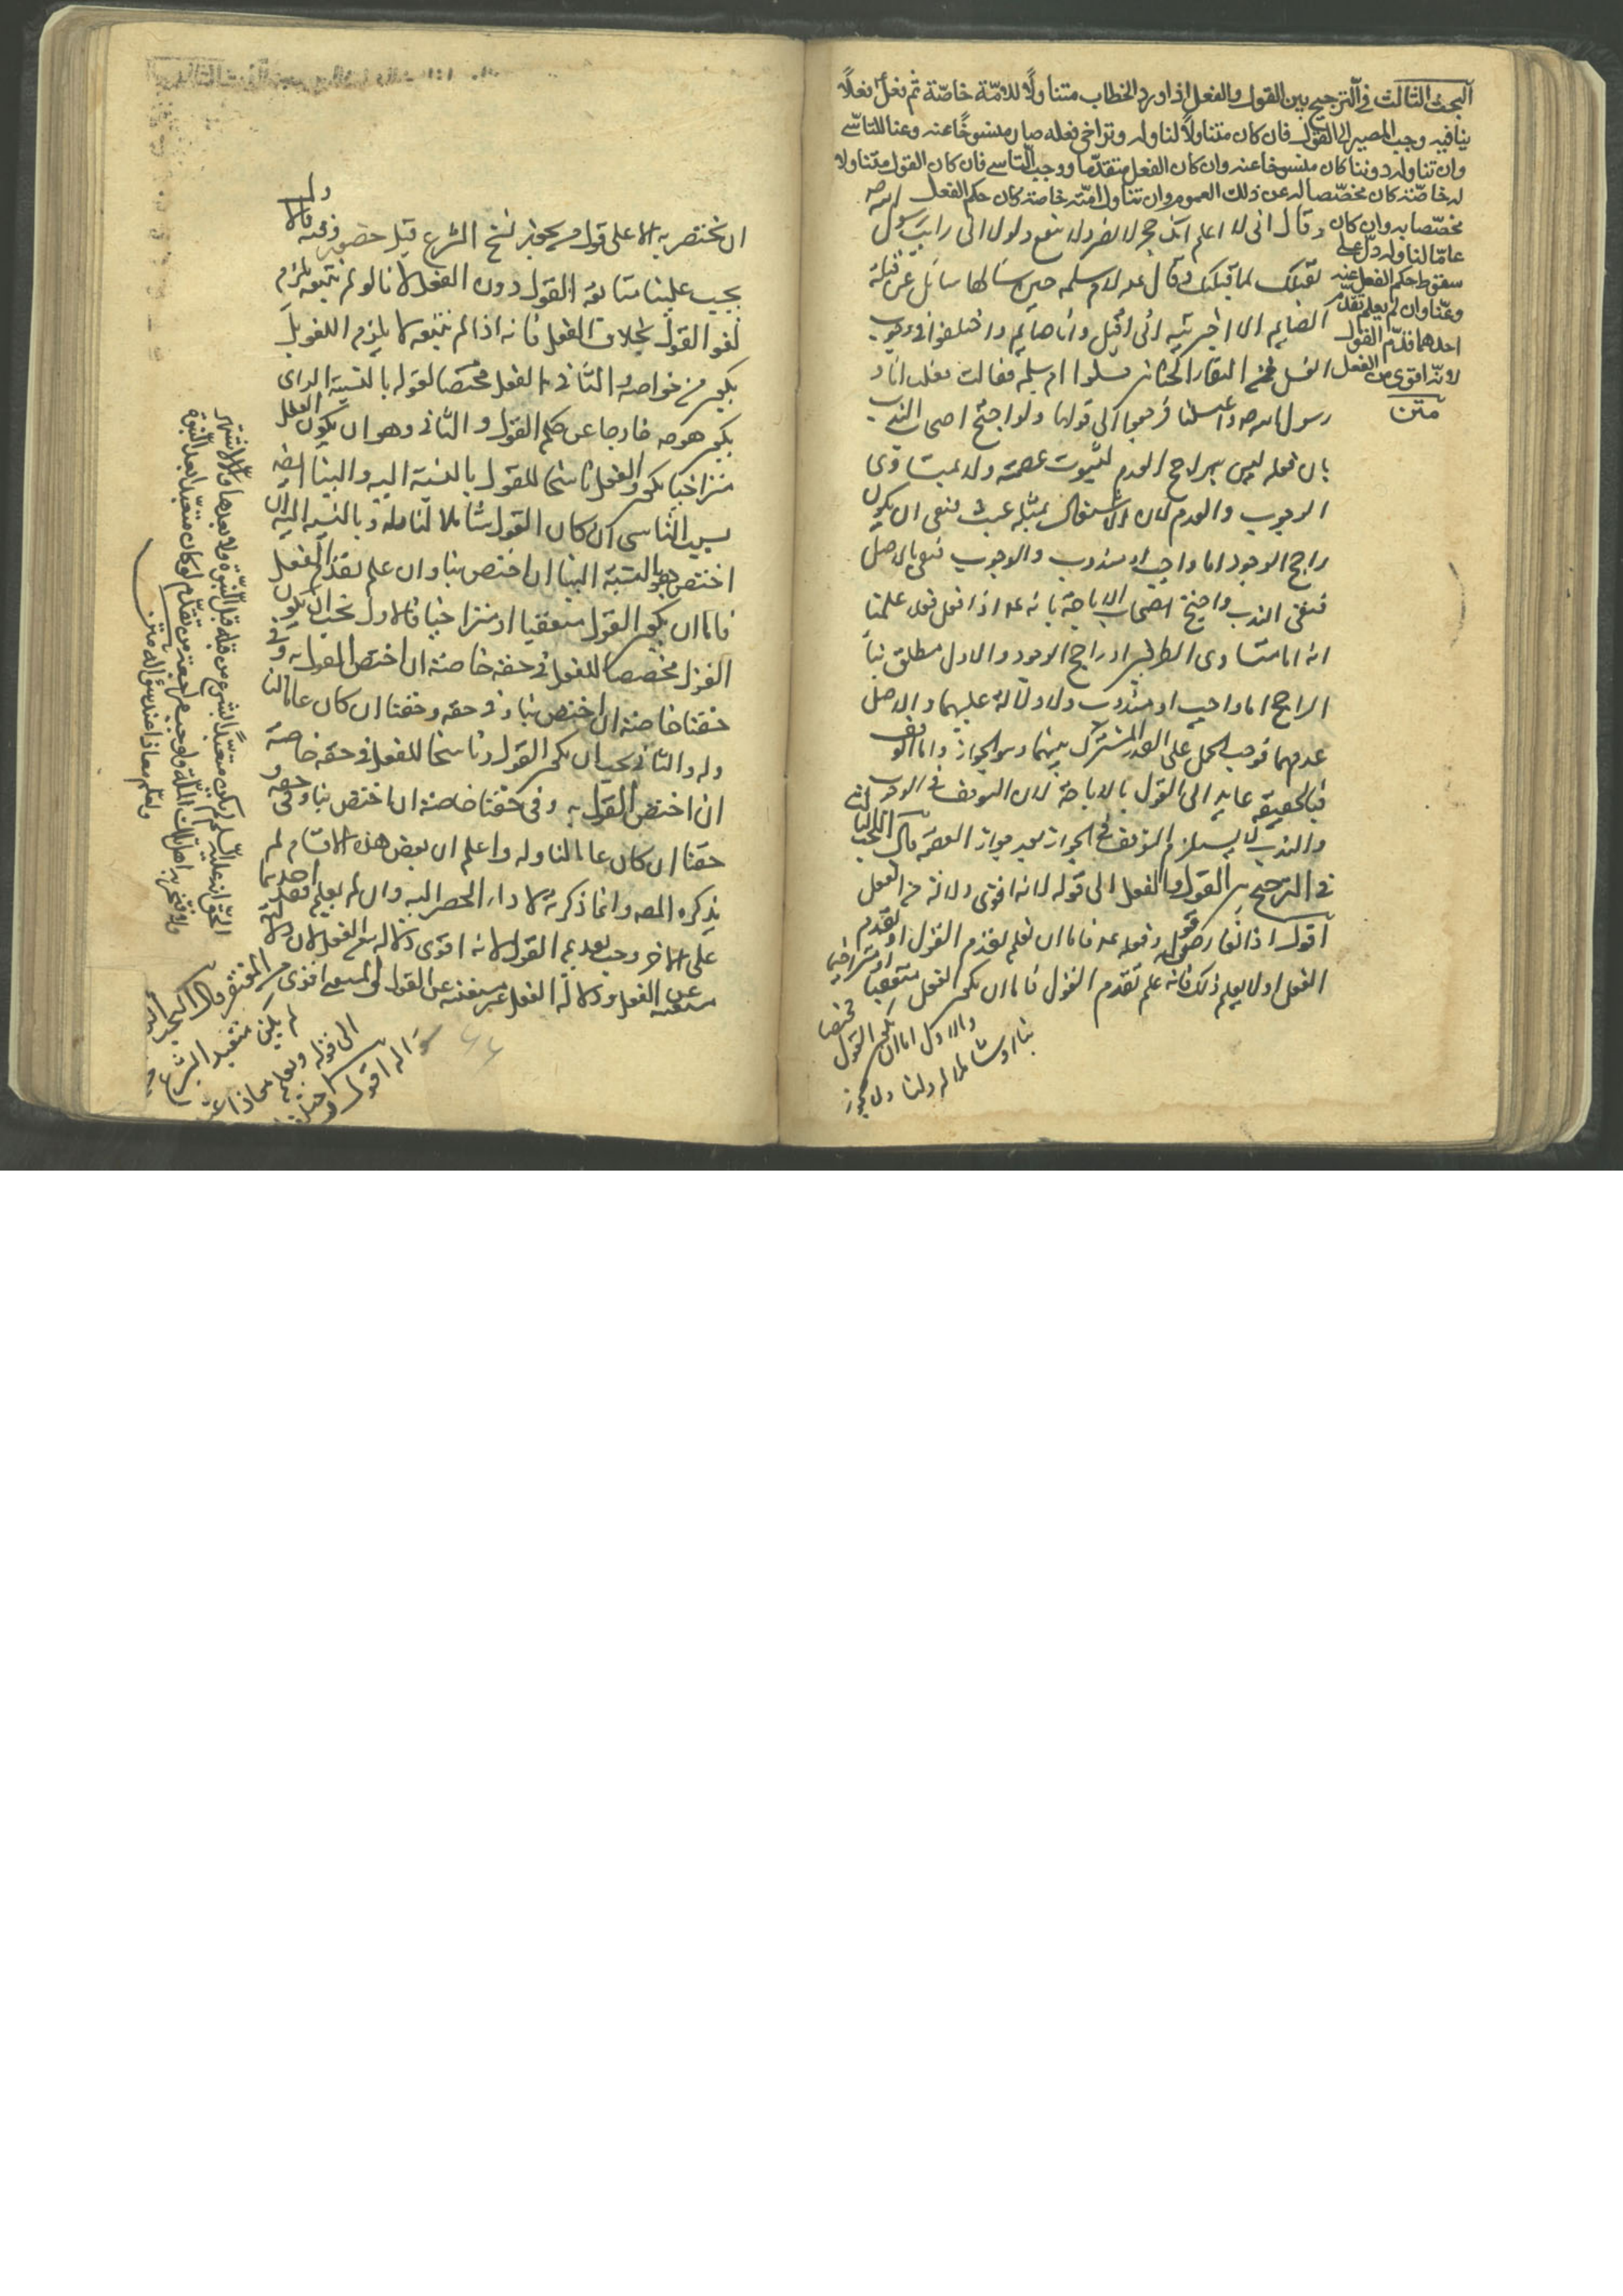 البحث الثالث في الترجيح بين القول والفعل اذا ورد الخطاب متناولًا للامّة خاصّة ثم فعل فعلًا
ينافيه وجب المصير الى القول فان كان متناولًا لنا وله وتراخى فعله صار منسوخًا عنه وعنا للتاسّي
وان تناوله دوننا كان منسوخا عنه وان كان الفعل متقدّما ووجب التاسي فان كان القول متناولا
له خاصّة كان مخصّصا له عن ذلك العموم وان تناول امّته خاصّة كان حكم الفعل
مخصّصا به وان كان
عامّا لنا وله دلّ على
سقوط حكم الفعل عنه
وعنّا وان لم يعلم تقدّم
احدهما قدّم القول
لانّه اقوى من الفعل
متن
وقال اني لا اعلم انك حجر لا تضر ولا تنفع ولولا اني رايت رسول الله ص
يقبلك لما قبلتك وقال عم لام سلمه حين سالها سائل عن قبلة
الصايم الا اخبرتيه انى اقبل وانا صايم واختلفوا في وجوب
الغسل من التقاء الختانين فسئلوا ام سلمه فقالت فعلت انا و
رسول الله ص واغتسلنا فرجعوا الى قولها واحتج اصحاب الندب
بان فعله ليس براجح العدم لثبوت عصمته ولا بمتساوي
الوجود والعدم لان الاشتغال بمثله عبث فبقى ان يكون
راجح الوجود اما واجب او مندوب والوجوب منفي بالاصل
فبقى الندب واحتج اصحاب الاباحة بانه عم اذا فعل فعلا علمنا
انه اما متساوى الطرفين او راجح الوجود والاول مطلق بنا
الراجح اما واجب او مندوب ولا دلالة عليهما والاصل
عدمهما فوجب الحمل على القدر المشترك بينهما وهو الجواز واما الوقف
فبالحقيقه عايد الى القول بالاباحة لان التوقف في الوجوب
والندب لا يستلزم التوقف في الجواز بعد جواز العصمه قال البحث الثالث
في الترجيح بين القول والفعل الى قوله لانه اقوى دلالة من الفعل
اقول اذا تعارض قوله وفعله عم فاما ان نعلم تقدم القول او تقدم
الفعل او لا يعلم ذلك فان علم تقدم القول فاما ان يكون الفعل متعقبا او متراخيا
والاول اما ان يكون القول مختصا
بنا او شاملا له ولنا ولا يجوز
ان يختص به الا على قول من يجوز نسخ الشرع قبل حضور وقته فالاول
يجب علينا متابعة القول دون الفعل لانا لو لم نتبعه يلزم
لغو القول بخلاف الفعل فانه اذا لم نتبعه لا يلزم اللغو بل
يكون من خواصه والثاني الفعل مختصا لقوله بالنسبة اليه اي
يكون هو ص خارجا عن حكم القول والثاني وهو ان يكون الفعل
متراخيا يكون الفعل ناسخا للقول بالنسبة اليه والينا ايضا
بسبب التاسي ان كان القول شاملا لنا وله وبالنسبة اليه ان
اختص به وبالنسبة الينا ان اختص بنا وان علم تقدم الفعل
فاما ان يكون القول متعقبا او متراخيا فالاول يجب ان يكون
القول مخصصا للفعل في حقه خاصة ان اختص القول به وفي
حقنا خاصة ان اختص بنا وفي حقه وحقنا ان كان عاما لنا
وله والثاني يجب ان يكون القول ناسخا للفعل في حقه خاصة
ان اختص القول به وفي حقنا خاصة ان اختص بنا وفي حقه و
حقنا ان كان عاما لنا وله واعلم ان بعض هذه الاقسام لم
يذكره المصه وانما ذكرته لاداء الحصر اليه وان لم يعلم تقدم احدهما
على الاخر وجب تقديم القول لانه اقوى دلالة من الفعل لان دلالة
مستغنيه عن الفعل ودلالة الفعل غير مستغنيه عن القول والمستغني اقوى من المفتقر قال البحث الرابع
لم يكن متعبدا بشرع
الى قوله ويعلم معاذا عند
سواله اقول
الحقّ انه عليه السّلم لم يكن متعبّدًا بشرع من قبله قبل النبوّة ولا بعدها والّا لاشتهر
ولافتخر به اهل تلك الملّة ولوجب مراجعة من تقدّم لو كان متعبّدًا بعد النبوّة
ولعلّم معاذا عند سؤاله متن